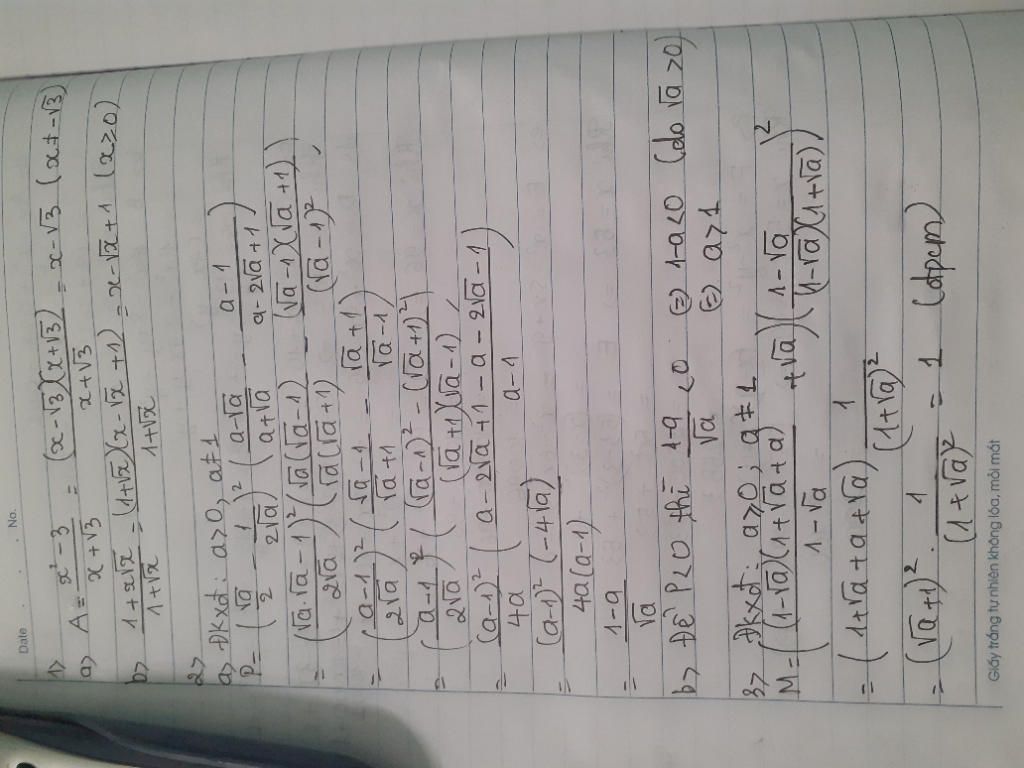 Date No.
1>
a> A = x² - 3 / x + √3 = (x - √3)(x + √3) / x + √3 = x - √3 (x ≠ -√3)
b> 1 + x√x / 1 + √x = (1 + √x)(x - √x + 1) / 1 + √x = x - √x + 1 (x ≥ 0)
2>
a> Đkxđ: a > 0, a ≠ 1
P = (√a / 2 - 1 / 2√a)² (a - √a / a + √a - a - 1 / a - 2√a + 1)
= (√a.√a - 1 / 2√a)² (√a(√a - 1) / √a(√a + 1) - (√a - 1)(√a + 1) / (√a - 1)²)
= (a - 1 / 2√a)² (√a - 1 / √a + 1 - √a + 1 / √a - 1)
= (a - 1 / 2√a)² ((√a - 1)² - (√a + 1)² / (√a + 1)(√a - 1))
= (a - 1)² / 4a (a - 2√a + 1 - a - 2√a - 1 / a - 1)
= (a - 1)² (-4√a) / 4a(a - 1)
= 1 - a / √a
b> Để P < 0 thì 1 - a / √a < 0 ⇔ 1 - a < 0 (do √a > 0)
⇔ a > 1
3> Đkxđ: a ≥ 0; a ≠ 1
M = ((1 - √a)(1 + √a + a) / 1 - √a + √a)(1 - √a / (1 - √a)(1 + √a))²
= (1 + √a + a + √a) 1 / (1 + √a)²
= (√a + 1)² . 1 / (1 + √a)² = 1 (đpcm)
Giấy trắng tự nhiên không lóa, mỏi mắt